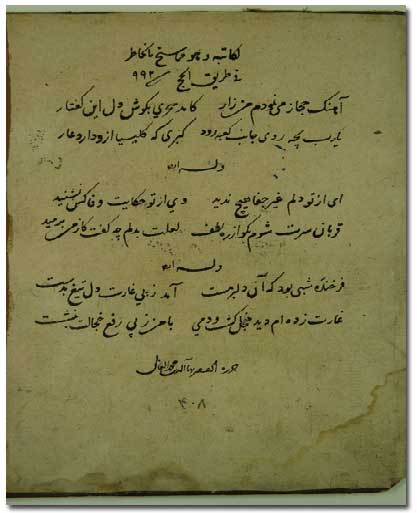 لکاتبه و هو مما سنح بالخاطر
فی طریق الحج سنه ۹۹۲
آهنگ حجاز می نمودم من زار کامد سحری بکوش دل این کفتار
یارب بچه روی جانب کعبه رود کبری که کلیسیا ازو دارد عار
وله ایضا
ای از تو دلم غیر جفا هیچ ندید وی از تو حکایت وفا کس نشنید
قربان سرت شوم بکو از ره لطف لعلت بدلم چه کفت کز من برمید
وله ایضا
فرخنده شبی بود که آن دلبر مست آمد ز پی غارت دل تیغ بدست
غارت زده ام دید خجل کشت و دمی با من ز پی رفع خجالت بنشست
حرره الفقیر بهاء الدین محمد العاملی
۴۰۸